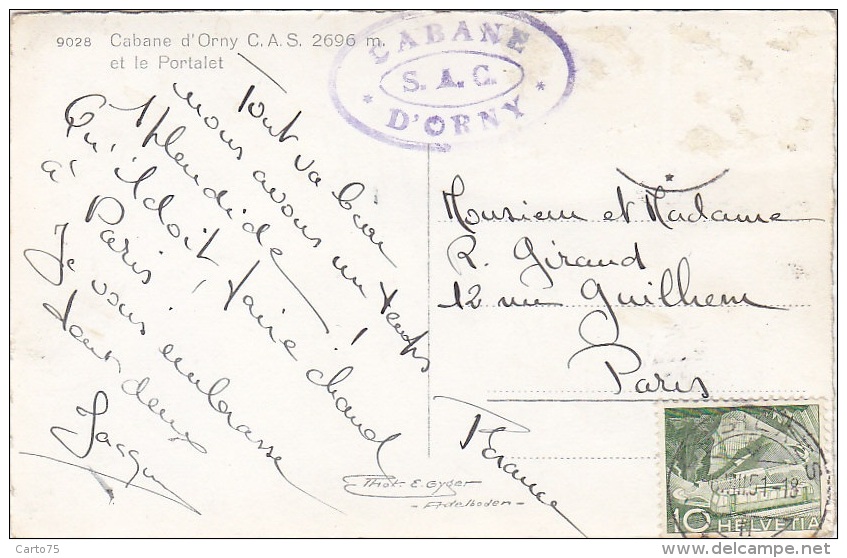 9028 Cabane d'Orny C.A.S. 2696 m.
et le Portalet
CABANE
S.A.C.
D'ORNY
Tout va bien
nous avons un temps
splendide
Qu'il doit faire chaud
à Paris !
Je vous embrasse
tous deux
Jacques
Monsieur et Madame
R. Giraud
12 rue Guilhem
Paris
France
Phot. E. Gyger
- Adelboden -
51-18
10 HELVETIA
Carto75
delcampe.net